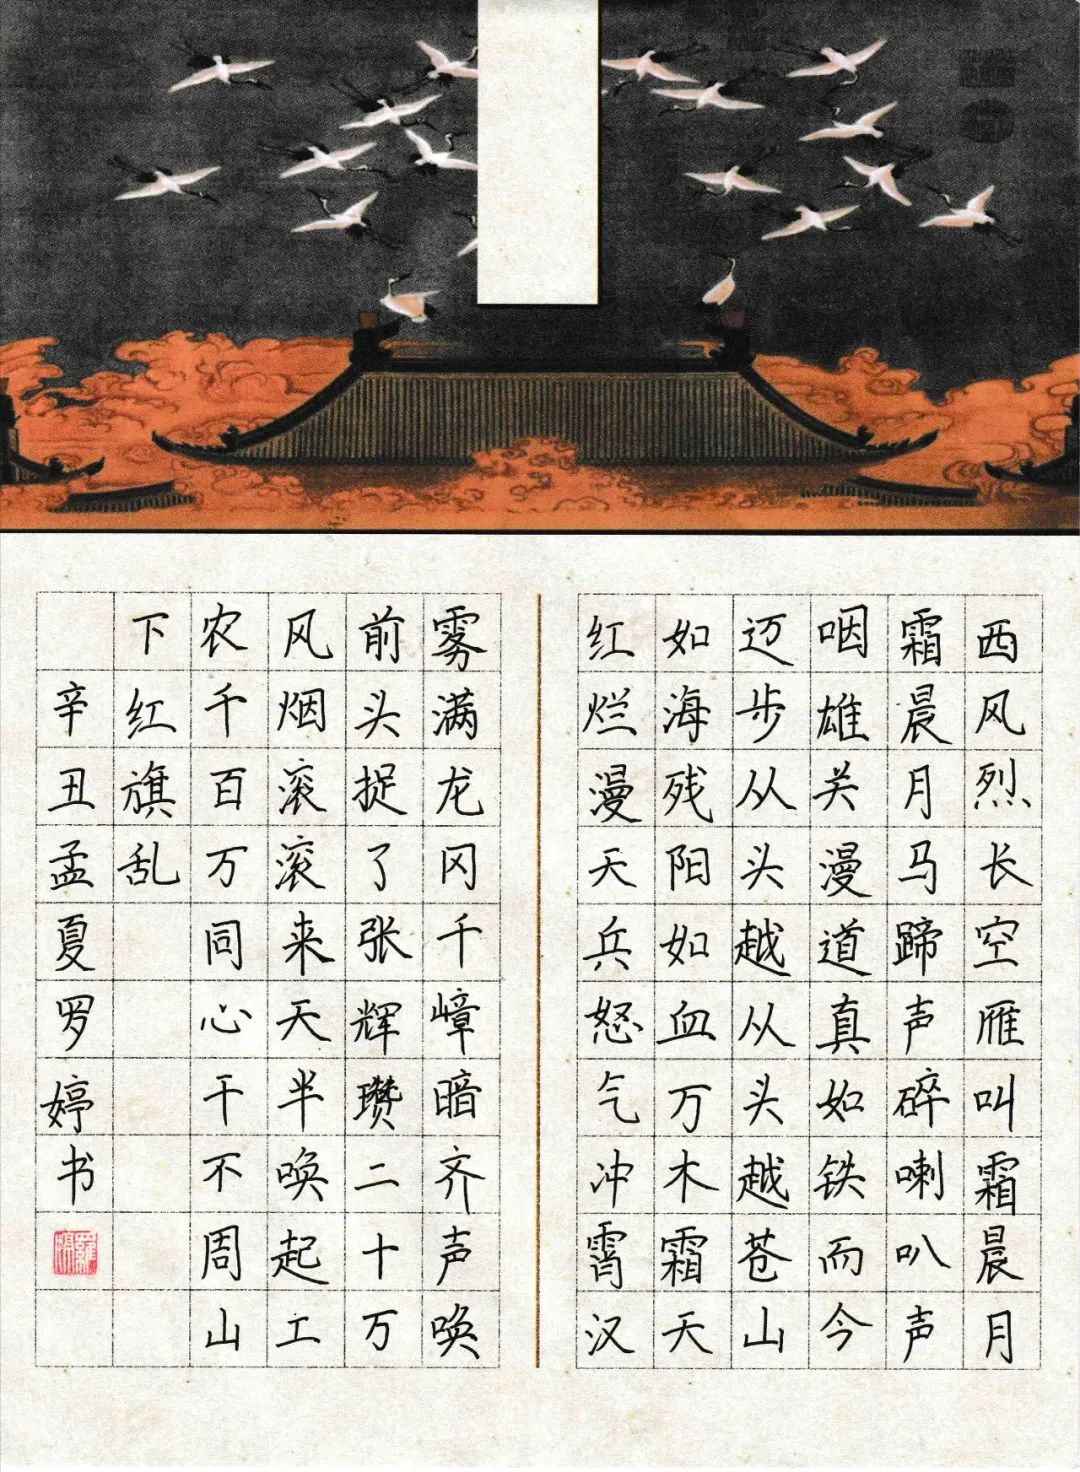 西风烈长空雁叫霜晨月
霜晨月马蹄声碎喇叭声
咽雄关漫道真如铁而今
迈步从头越从头越苍山
如海残阳如血万木霜天
红烂漫天兵怒气冲霄汉
雾满龙冈千嶂暗齐声唤
前头捉了张辉瓒二十万
风烟滚滚来天半唤起工
农千百万同心干不周山
下红旗乱
辛丑孟夏罗婷书